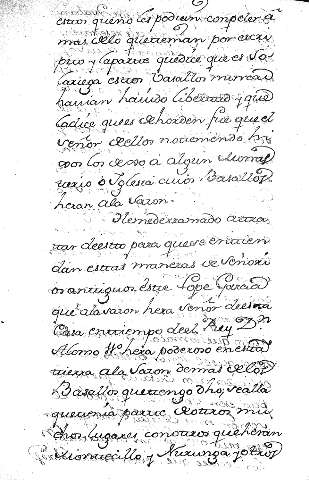 estos que no los podian conpeler a
mas delo que tenian por escri
pto y la parte que dice que es So
lariega estos Basallos nunca
havian havido libertad y que
la dice que es de horden fue que el
señor dellos no teniendo hi
xos los dexo a algun Monas
terio o Iglesia cuios Basallos
heran a la saron.
He me derramado a tra
tar de esto para que se entien
dan estas maneras de señori
os antiguos este Lope Garcia
que a la saron hera Señor de esta
Casa en tiempo de el Rey Dn
Alonso 11º hera poderoso en esta
tierra a la saron demas de los
Basallos que tengo dho, se alla
que tenia parte de otros mu
chos lugares como son que heran
Montecillo, y Nununga, y otros